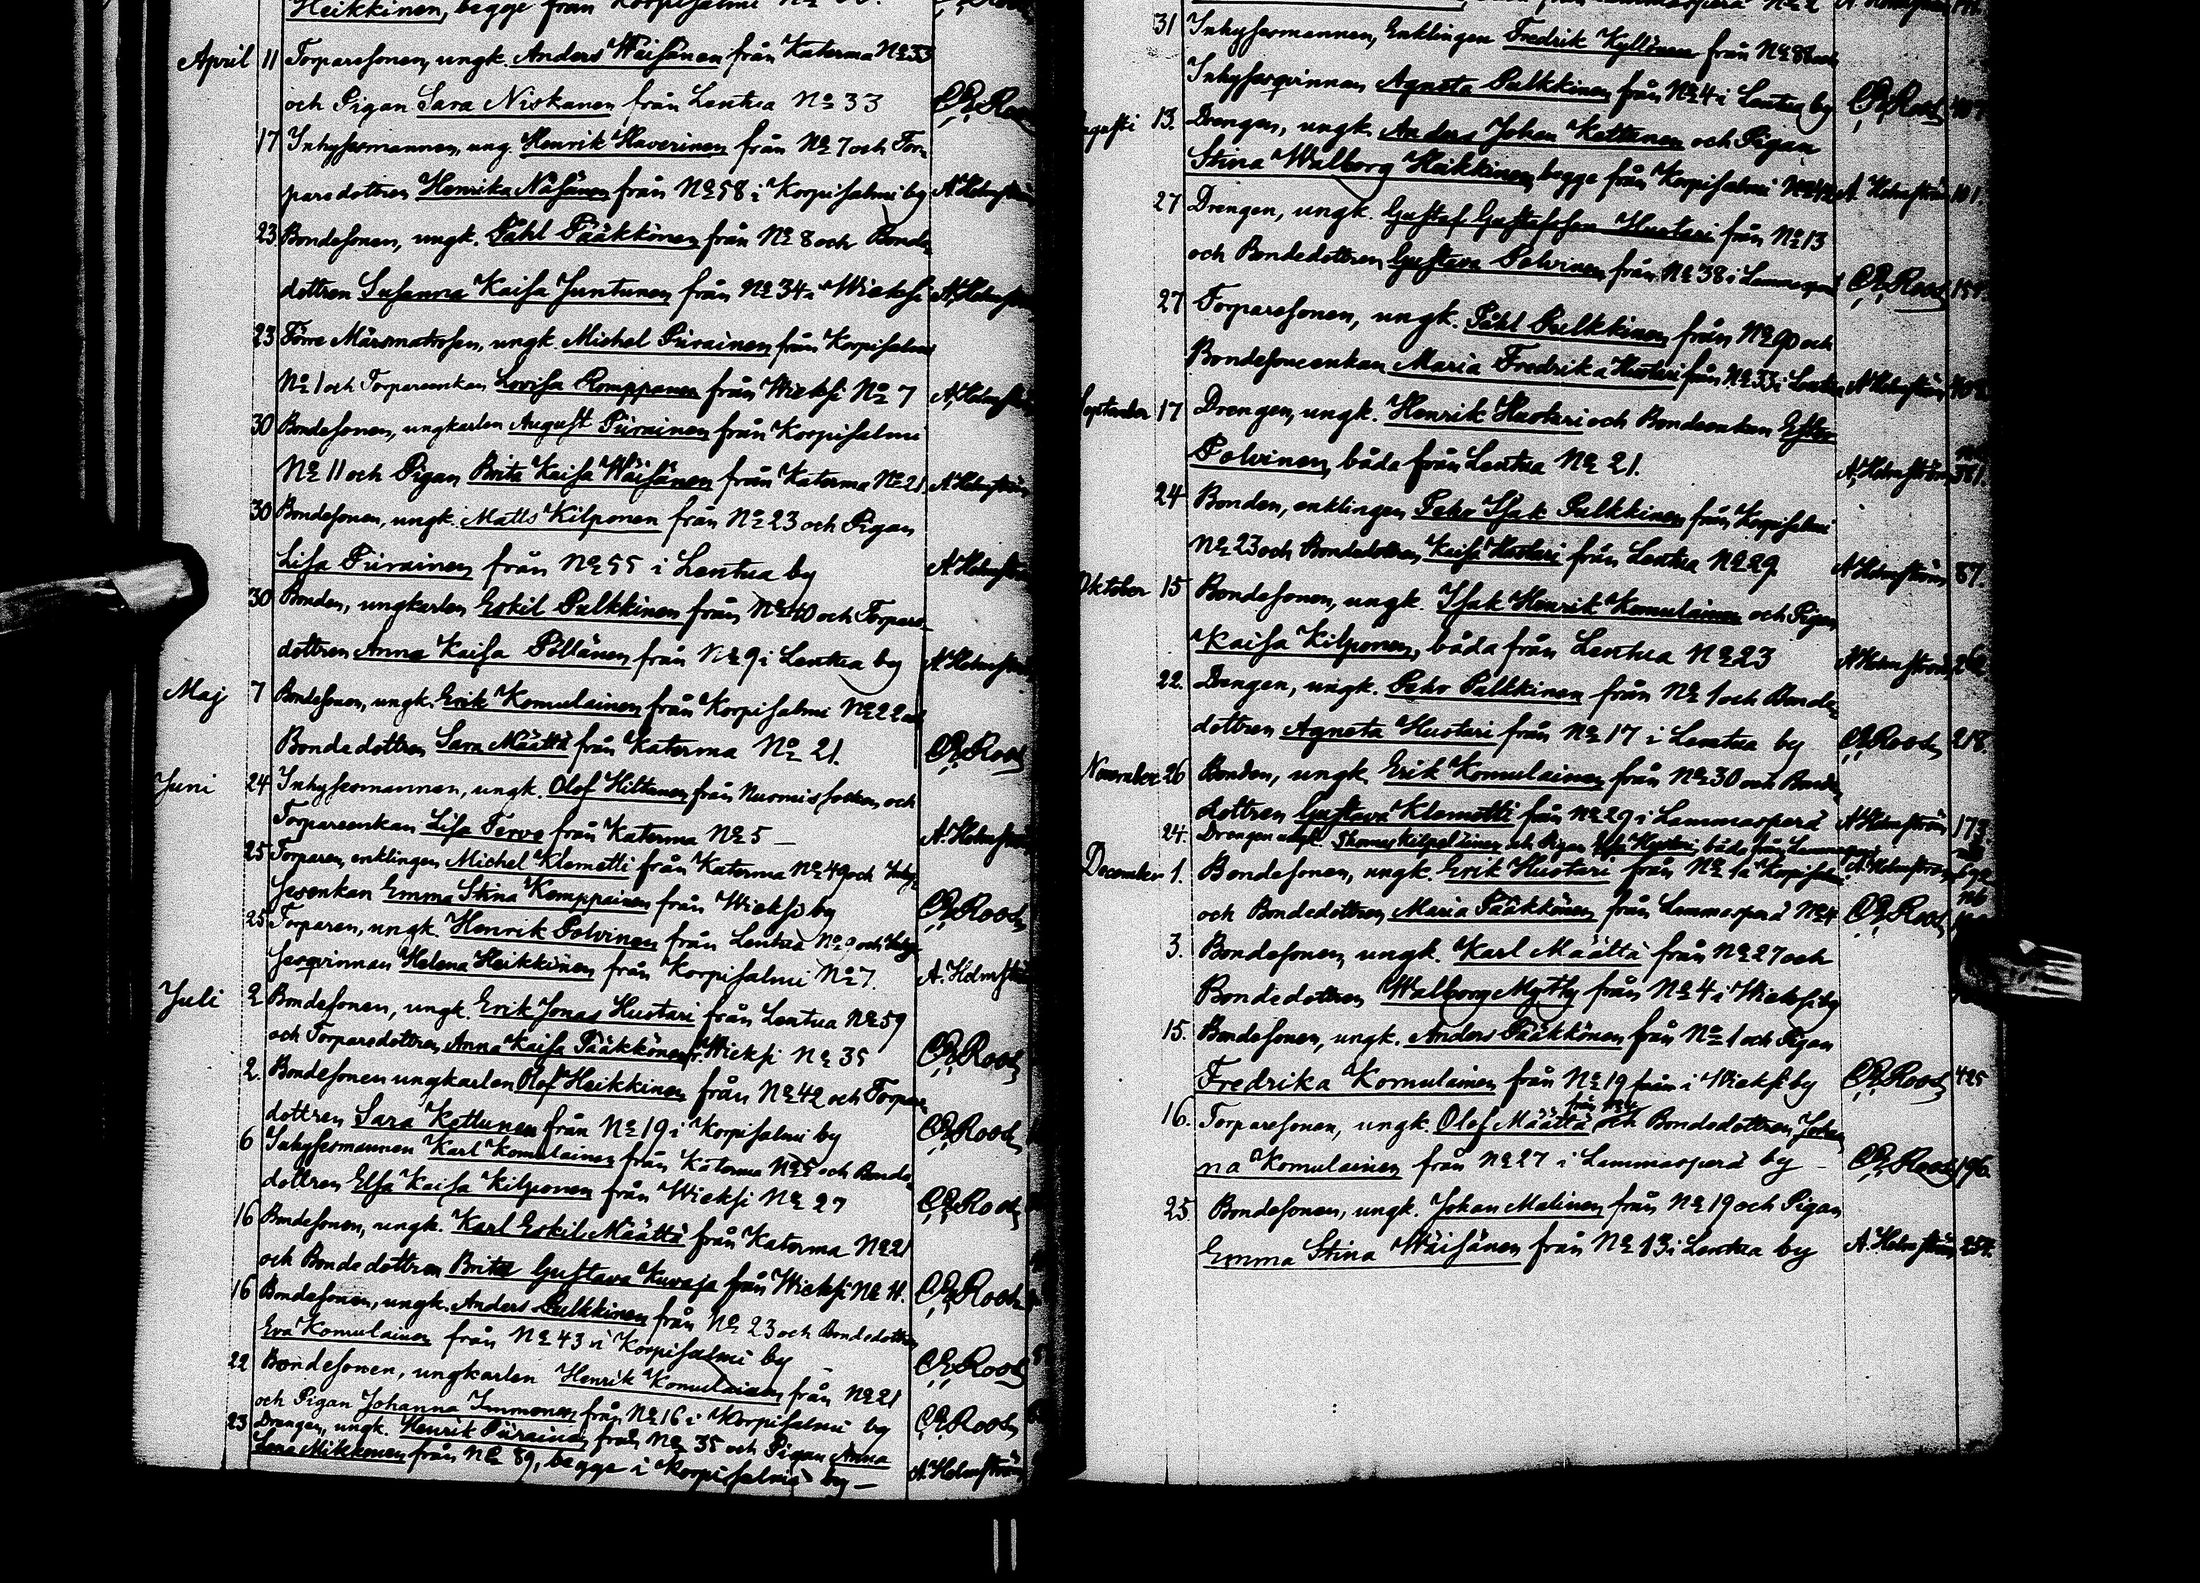 Heikkinen, begge från Korpisalmi
April 11 Torparesonen, ungk. Anders Wäisänen från Katerma No 33
och Pigan Sara Niskanen från Lentua No 33 C.R. Roos
17 Inhysesmannen, ung. Henrik Haverinen från No 7 och Tor-
paredottren Henrika Näsänen från No 58 i Korpisalmi by A. Holmström
23 Bondesonen, ungk. Påhl Pääkkönen från No 8 och Bonde-
dottren Susanna Kaisa Juntunen från No 34 i Wieksi A. Holmström
23 Förre Märsmatrosen, ungk. Michel Piirainen från Korpisalmi
No 1 och Torpareenkan Lovisa Romppanen från Wieksi No 7 A. Holmström
30 Bondesonen, ungkarlen August Piirainen från Korpisalmi
No 11 och Pigan Brita Kaisa Wäisänen från Katerma No 21 A. Holmström
30 Bondesonen, ungk. Matts Kilponen från No 23 och Pigan
Lisa Piirainen från No 55 i Lentua by A. Holmström
30 Bonden, ungkarlen Eskil Pulkkinen från No 40 och Torpare-
dottren Anna Kaisa Pöllänen från No 9 i Lentua by A. Holmström
Maj 7 Bondesonen, ungk. Erik Komulainen från Korpisalmi No 22 och
Bondedottren Sara Määttä från Katerma No 21. C.R. Roos
Juni 24 Inhysesmannen, ungk. Olof Hiltunen från Nurmis socken, och
Torpareenkan Lisa Tervo från Katerma No 5 — A. Holmström
25 Torparen, enklingen Michel Klemetti från Katerma No 49 och Inhy-
sesenkan Emma Stina Komppainen från Wieksi by C.R. Roos
25 Torparen, ungk. Henrik Polvinen från Lentua No 9 och Inhy-
sesqvinnan Helena Heikkinen från Korpisalmi No 7. A. Holmström
Juli 2 Bondesonen, ungk. Erik Jonas Hustari från Lentua No 59
och Torparedottren Anna Kaisa Pääkkönen fr. Wieksi No 35 C.R. Roos
2. Bondesonen ungkarlen Olof Heikkinen från No 42 och Torpare
dottren Sara Kettunen från No 19 i Korpisalmi by C.R. Roos
6 Inhysesmannen Karl Komulainen från Katerma No 5 och Bonde-
dottren Elsa Kaisa Kilponen från Wieksi No 27 C.R. Roos
16 Bondesonen, ungk. Karl Eskil Määttä från Katerma No 21
och Bondedottren Brita Gustava Kuvaja från Wieksi No 4. C.R. Roos
16 Bondesonen, ungk. Anders Pulkkinen från No 23 och Bondedottren
Eva Komulainen från No 43 i Korpisalmi by C.R. Roos
22 Bondesonen, ungkarlen Henrik Komulainen från No 21
och Pigan Johanna Immonen från No 16 i Korpisalmi by C.R. Roos
23 Drengen, ungk. Henrik Piirainen från No 35 och Pigan Anna
Lena Mikkonen från No 89, begge i Korpisalmi by — A. Holmström
31 Inhysesmannen, Enklingen Fredrik Kyllönen från No 86 och
Inhysesqvinnan Agneta Pulkkinen från No 4 i Lentua by C.R. Roos
Augusti 13. Drengen, ungk. Anders Johan Kettunen och Pigan
Stina Walborg Heikkinen, begge från Korpisalmi No 42 A. Holmström
27 Drengen, ungk. Gustaf Gustafsson Hustari från No 13
och Bondedottren Gustava Polvinen från No 38 i Lammasperä C.R. Roos
27 Torparesonen, ungk. Påhl Pulkkinen från No 90 och
Bondesoneenkan Maria Fredrika Hustari från No 33 i Lentua A. Holmström
September 17 Drengen, ungk. Henrik Hustari och Bondeenkan Ester
Polvinen, båda från Lentua No 21. A. Holmström 381.
24 Bonden, enklingen Pehr Isak Pulkkinen från Korpisalmi
No 23 och Bondedottren Kaisa Hustari från Lentua No 29. A. Holmström 87.
Oktober 15 Bondesonen, ungk. Isak Henrik Komulainen och Pigan
Kaisa Kilponen, båda från Lentua No 23 A. Holmström 262
22. Drengen, ungk. Pehr Pulkkinen från No 1 och Bonde-
dottren Agneta Hustari från No 17 i Lentua by C.R. Roos 218.
November 26 Bonden, ungk. Erik Komulainen från No 30 och Bonde-
dottren Gustava Klemetti från No 29 i Lammasperä A. Holmström 173
24. Drengen ungk. Thomas Kilpeläinen och Pigan Ulla Hustari, båda från Lammasperä A. Holmström
December 1. Bondesonen, ungk. Erik Hustari från No 1a Korpisalmi
och Bondedottren Maria Pääkkönen från Lammasperä No 4 C.R. Roos
3. Bondesonen, ungk. Karl Määttä från No 27 och
Bondedottren Walborg Mytty från No 4 i Wieksi by
15. Bondesonen, ungk. Anders Pääkkönen från No 1 och Pigan
Fredrika Komulainen från No 19 från i Wieksi by C.R. Roos 425
16. Torparesonen, ungk. Olof Määttä och Bondedottren Johan
na Komulainen från No 27 i Lammasperä by — C.R. Roos 196.
25 Bondesonen, ungk. Johan Malinen från No 19 och Pigan
Emma Stina Wäisänen från No 13 i Lentua by A. Holmström 254.